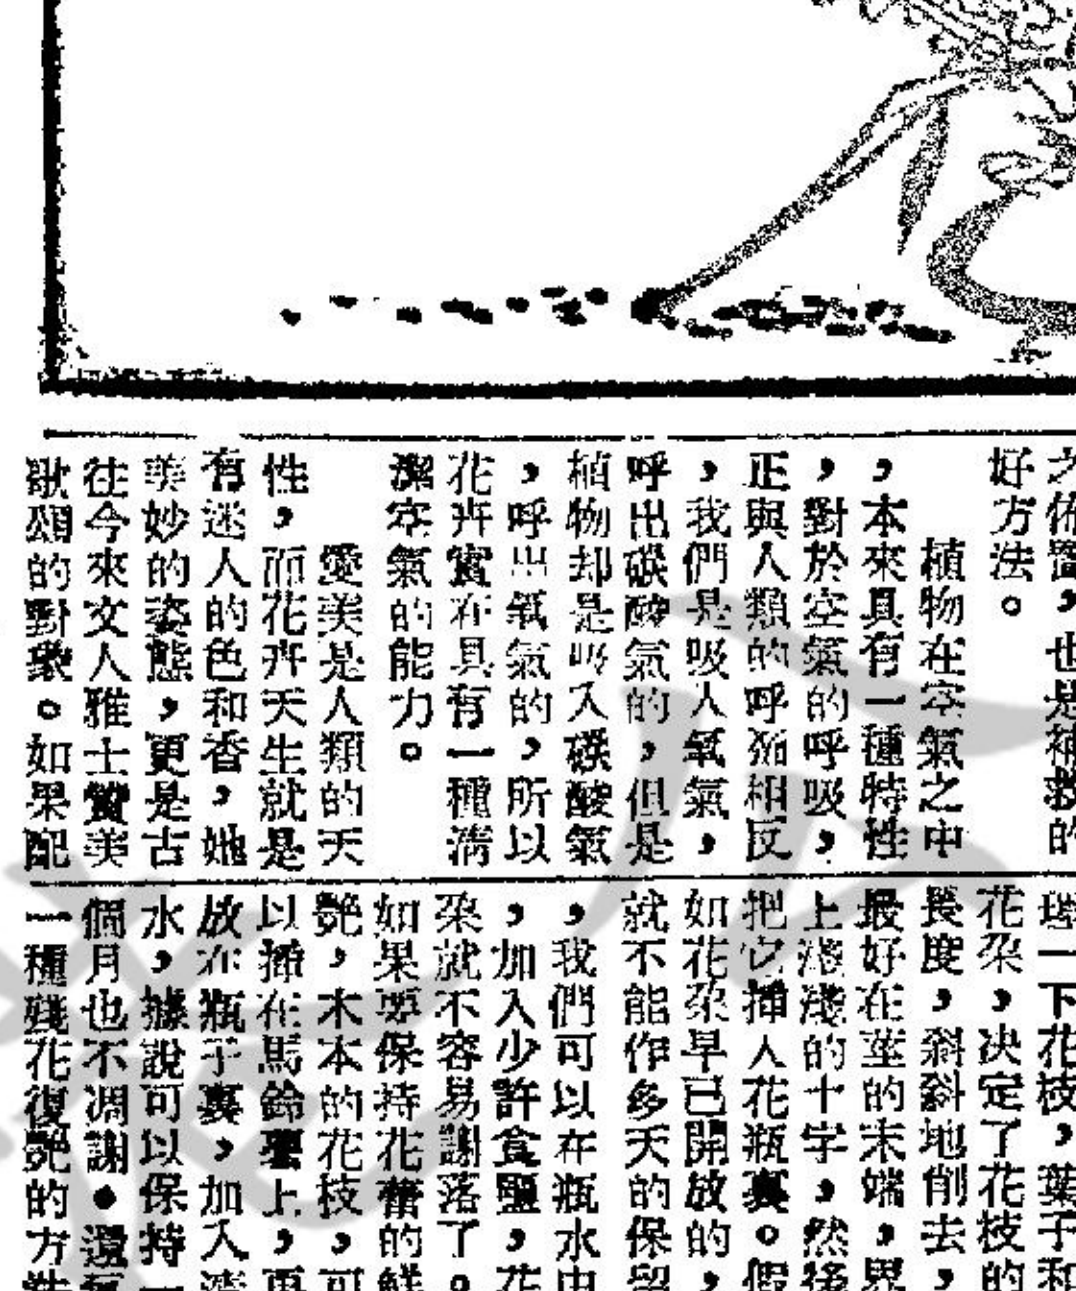 之佈置，也是補救的
好方法。
植物在空氣之中
，本來具有一種特性
，對於空氣的呼吸，
正與人類的呼吸相反
，我們是吸入氧氣，
呼出碳酸氣的，但是
植物却是吸入碳酸氣
，呼出氧氣的，所以
花卉實在具有一種清
潔空氣的能力。
愛美是人類的天
性，而花卉天生就是
有迷人的色和香，她
美妙的姿態，更是古
往今來文人雅士贊美
歌頌的對象。如果配
一下花枝，葉子和
花朵，决定了花枝的
長度，斜斜地削去，
最好在莖的末端，
上淺淺的十字，然後
把它插入花瓶裏。假
如花朵早已開放的，
就不能作多天的保留
，我們可以在瓶水中
，加入少許食鹽，花
朶就不容易謝落了。
如果要保持花蕾的鮮
艷，木本的花枝，可
以插在馬鈴薯上，再
放在瓶子裏，加入清
水，據說可以保持一
個月也不凋謝。還有
一種殘花復艷的方法